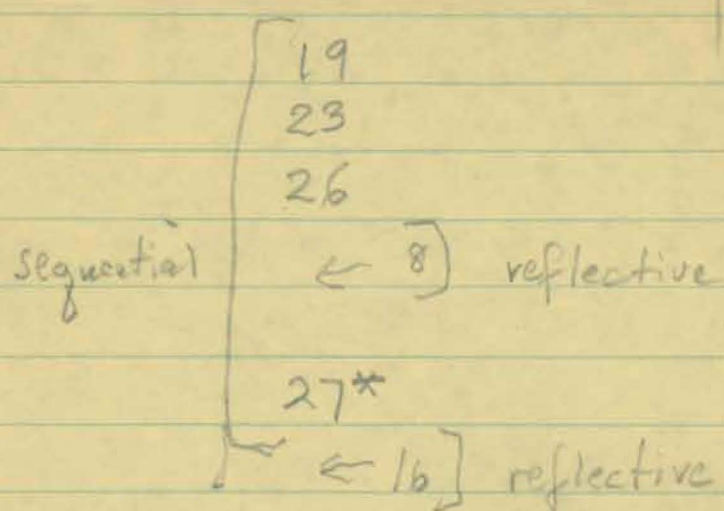 19
23
26
sequential ← 8] reflective
27*
← 16] reflective